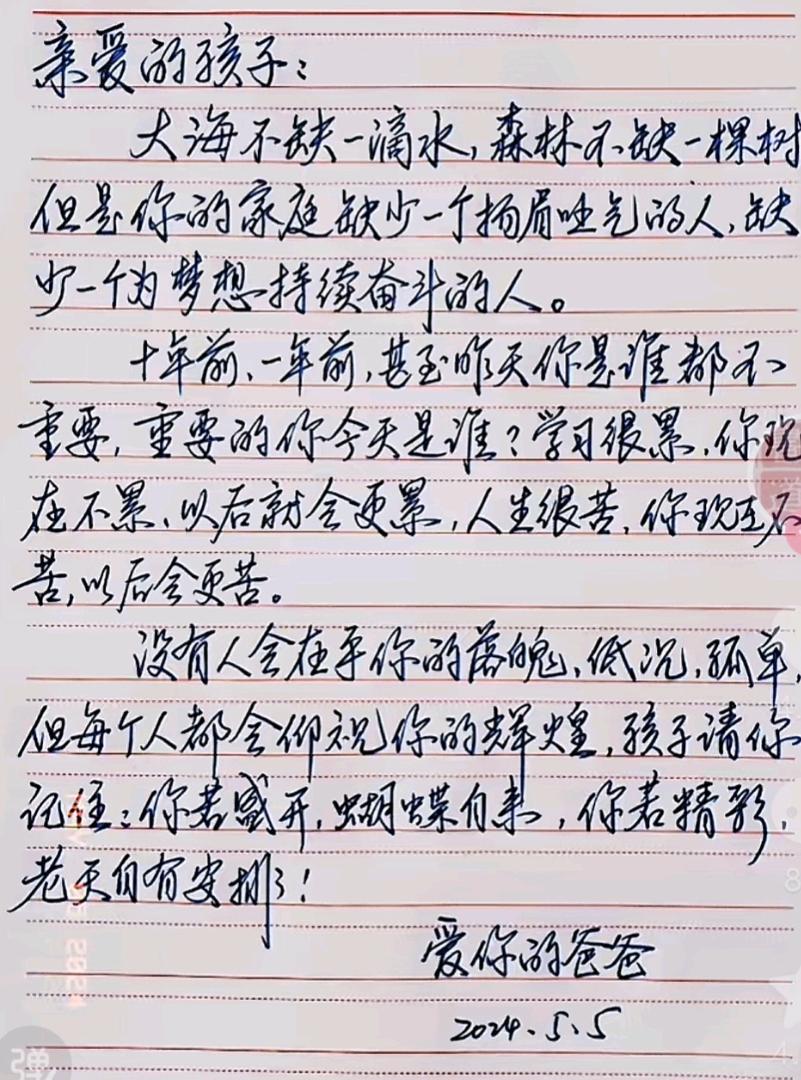 亲爱的孩子：
大海不缺一滴水，森林不缺一棵树
但是你的家庭缺少一个扬眉吐气的人，缺
少一个为梦想持续奋斗的人。
十年前、一年前，甚至昨天你是谁都不
重要，重要的你今天是谁？学习很累，你现
在不累、以后就会更累，人生很苦，你现在不
苦，以后会更苦。
没有人会在乎你的落魄、低沉，孤单，
但每个人都会仰视你的辉煌，孩子请你
记住：你若盛开，蝴蝶自来，你若精彩，
老天自有安排！
爱你的爸爸
2024.5.5
弹